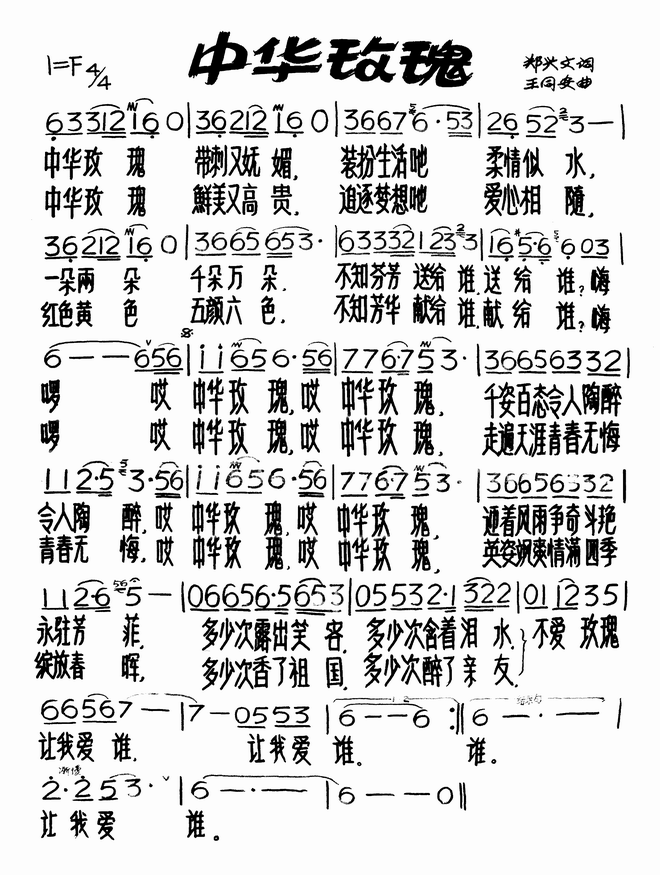 中华玫瑰
1=F 4/4
郑兴文词
王同安曲
6 3 3 3 1 2 1 6 0 | 3 6 2 1 2 1 6 0 | 3 6 6 7 6 · 5 3 | 2 6 5 2 3 — |
中华玫 瑰 带刺又妩 媚, 装扮生活吔 柔情似 水,
中华玫 瑰 鲜美又高 贵, 追逐梦想吔 爱心相 随,
3 6 2 1 2 1 6 0 | 3 6 6 5 6 5 3 · | 6 3 3 3 2 1 2 3 3 | 1 6 5 · 6 6 0 3 |
一朵兩 朵 千朵万 朵, 不知芬芳 送给 谁,送 给 谁?嗨
红色黄 色 五颜六 色, 不知芳华 献给 谁,献 给 谁?嗨
6 — — 6 5 6 | i i 6 5 6 · 5 6 | 7 7 6 · 7 5 3 · | 3 6 6 5 6 3 3 2 |
啰 哎 中华玫 瑰,哎 中华玫 瑰, 千姿百态令人陶醉
啰 哎 中华玫 瑰,哎 中华玫 瑰, 走遍天涯青春无悔
1 1 2 · 5 3 · 5 6 | i i 6 5 6 · 5 6 | 7 7 6 · 7 5 3 · | 3 6 6 5 6 3 3 2 |
令人陶 醉,哎 中华玫 瑰,哎 中华玫 瑰, 迎着风雨争奇斗艳
青春无 悔,哎 中华玫 瑰,哎 中华玫 瑰, 英姿飒爽情满四季
1 1 2 · 6 5 — | 0 6 6 5 6 · 5 6 5 3 | 0 5 5 3 2 · 1 3 2 2 | 0 1 1 2 3 5 |
永驻芳 菲, 多少次露出笑 容, 多少次含着泪 水, 不爱 玫瑰
绽放春 晖, 多少次香了祖 国, 多少次醉了亲 友,
6 6 5 6 7 — | 7 — 0 5 5 3 | 6 — — 6 :| 6 — · — |
让我爱 谁, 让我爱 谁。 谁。
渐慢
2 · 2 2 5 3 · | 6 — · — | 6 — — 0 ||
让我爱 谁。